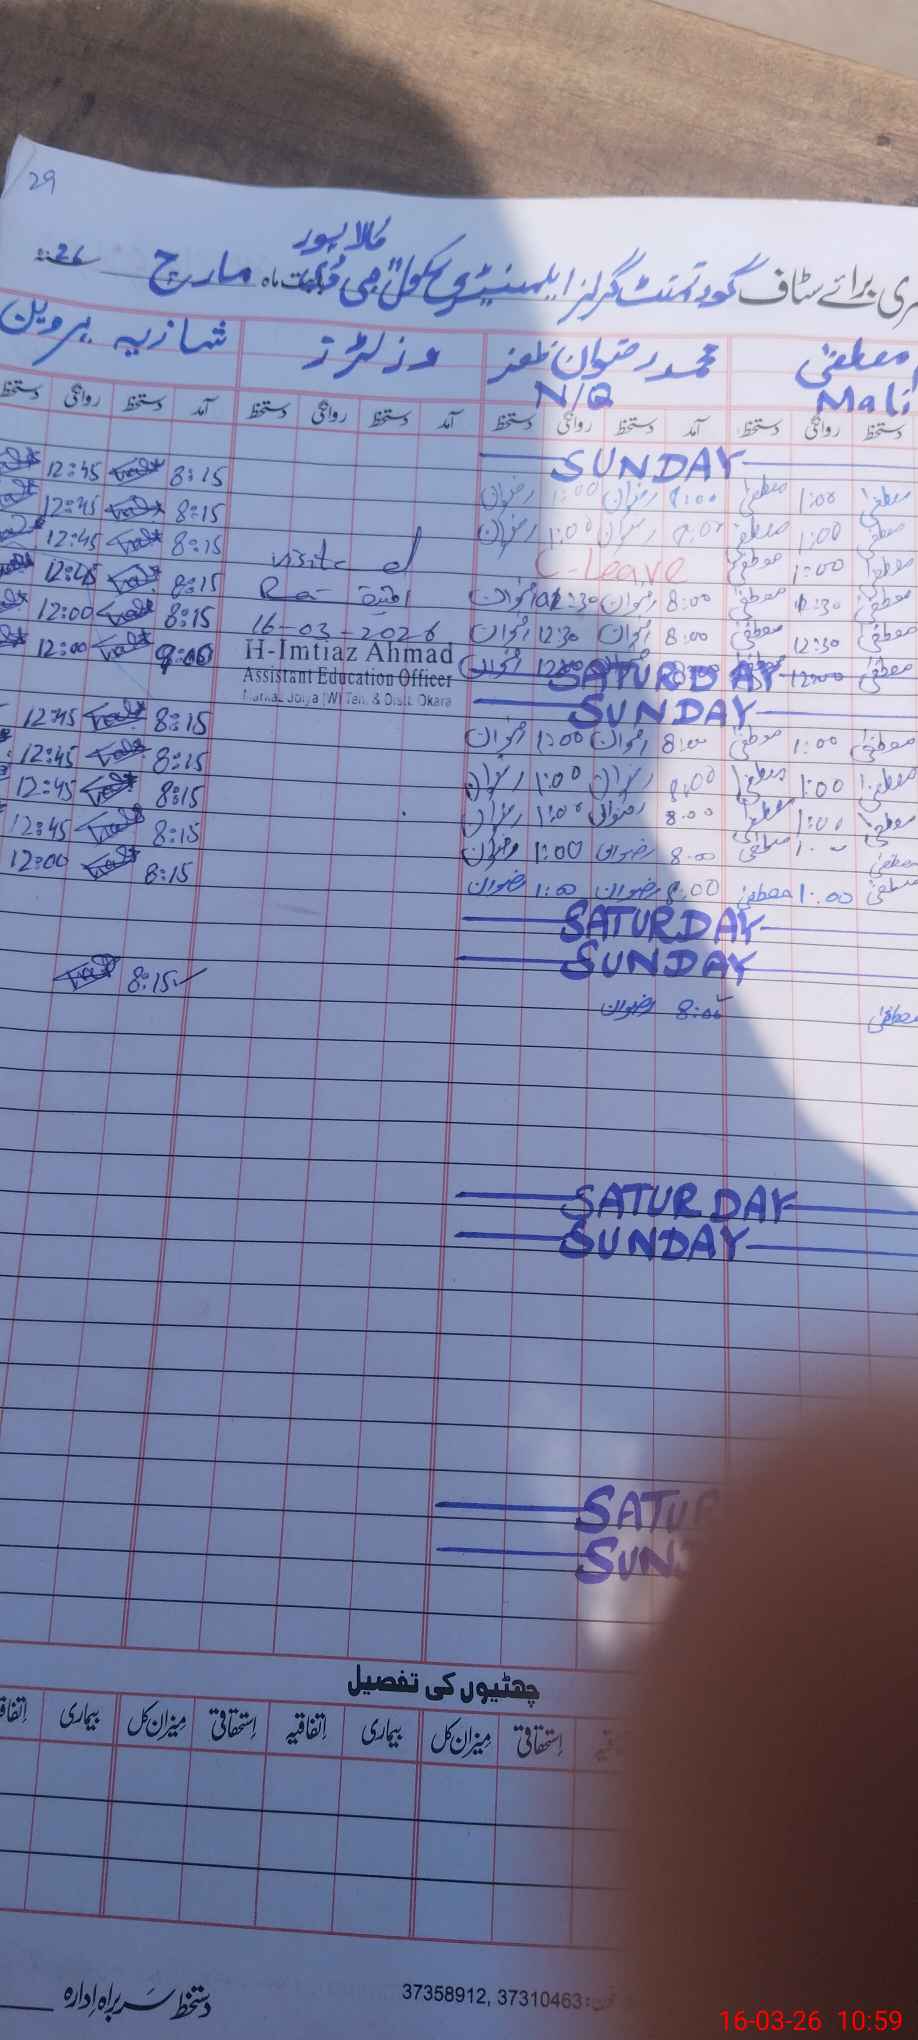 29
مالاپور
ری برائے سٹاف گورنمنٹ گرلز ایلیمنٹری سکول جی ماہ مارچ 26
مصطفیٰ محمد رضوان ظفر وزیٹرز شازیہ پروین
Mali N/Q
دستخط روانگی دستخط آمد دستخط روانگی دستخط آمد دستخط روانگی دستخط آمد دستخط روانگی دستخط
SUNDAY
12:45 8:15
مصطفیٰ 1:00 مصطفیٰ 8:00 رضوان 1:00 رضوان
12:45 8:15
مصطفیٰ 1:00 مصطفیٰ 8:00 رضوان 1:00 رضوان
12:45 8:15
مصطفیٰ 1:00 مصطفیٰ C-Leave
12:45 8:15
visited
مصطفیٰ 12:30 مصطفیٰ 8:00 رضوان 12:30 رضوان
12:00 8:15
مصطفیٰ 12:30 مصطفیٰ 8:00 رضوان 12:30 رضوان
16-03-2026
12:00 9:00
H-Imtiaz Ahmad
Assistant Education Officer
Markaz Jojya (W) Teh. & Distt. Okara
مصطفیٰ 12:00 SATURDAY
SUNDAY
12:45 8:15
مصطفیٰ 1:00 مصطفیٰ 8:00 رضوان 1:00 رضوان
12:45 8:15
مصطفیٰ 1:00 مصطفیٰ 8:00 رضوان 1:00 رضوان
12:45 8:15
مصطفیٰ 1:00 مصطفیٰ 8:00 رضوان 1:00 رضوان
12:45 8:15
مصطفیٰ 1:00 مصطفیٰ 8:00 رضوان 1:00 رضوان
12:00 8:15
مصطفیٰ 1:00 مصطفیٰ 8:00 رضوان 1:00 رضوان
SATURDAY
SUNDAY
8:15
مصطفیٰ 8:00 رضوان
SATURDAY
SUNDAY
SATUR
SUN
چھٹیوں کی تفصیل
اِستحقاقی میزان کل بیماری اِتفاقیہ اِستحقاقی میزان کل بیماری
دستخط سربراہ اِدارہ
37358912, 37310463
16-03-26 10:59